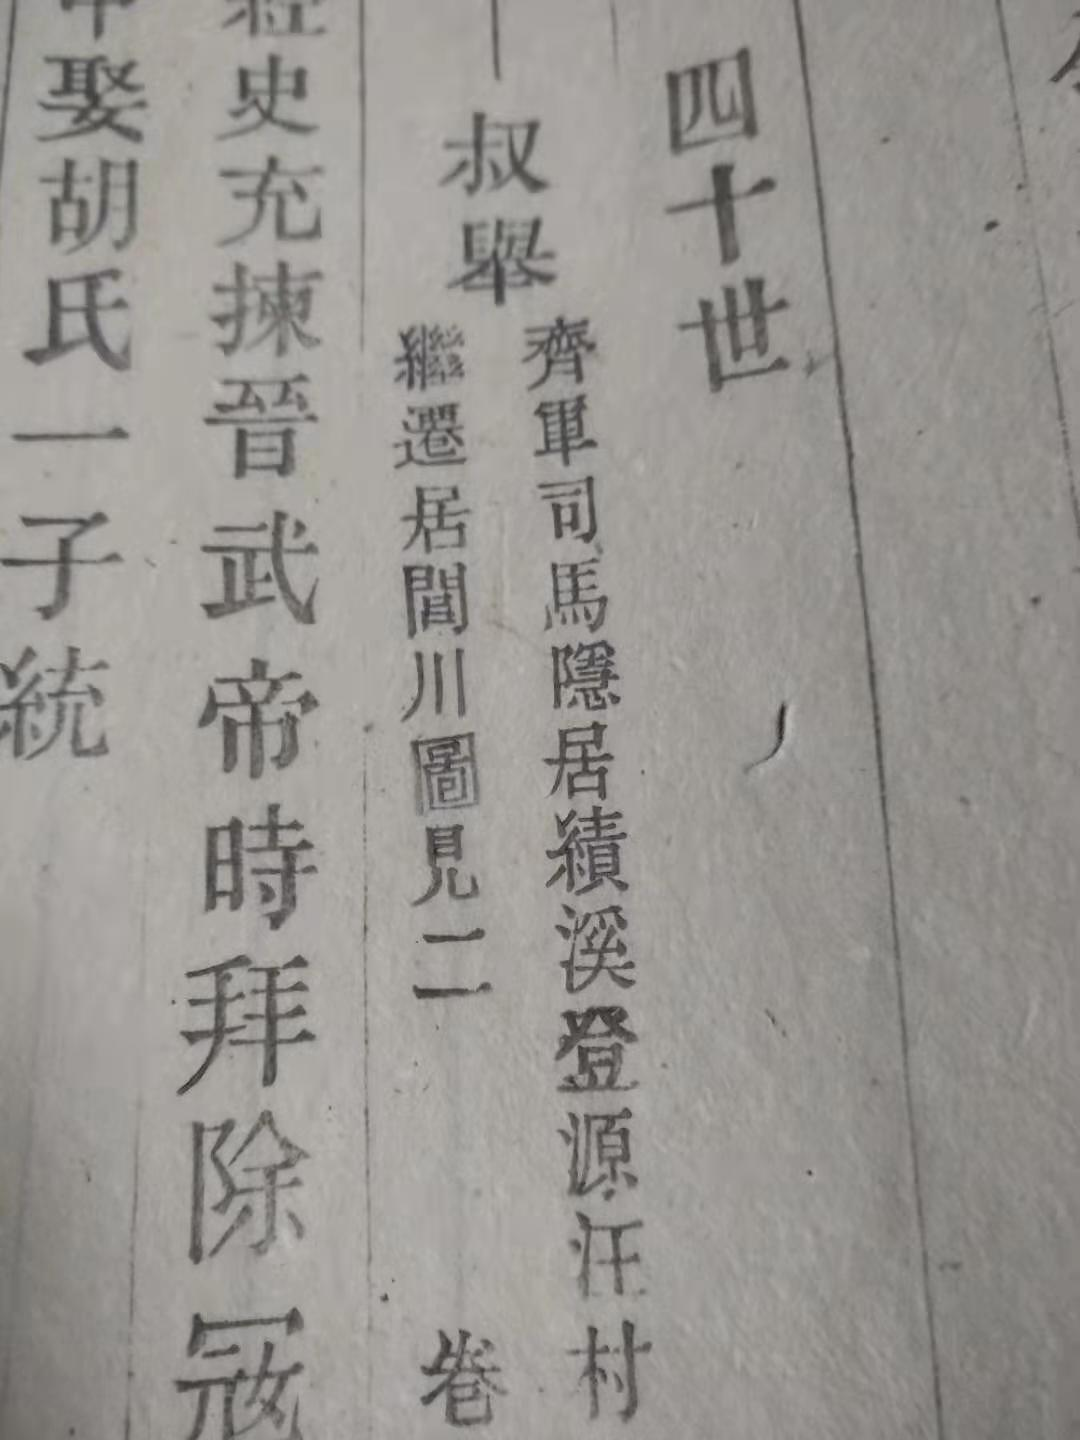 四十世
叔舉
齊軍司馬隱居績溪登源汪村
繼遷居閶川圖見二卷
史充揀晉武帝時拜除冠
娶胡氏一子統